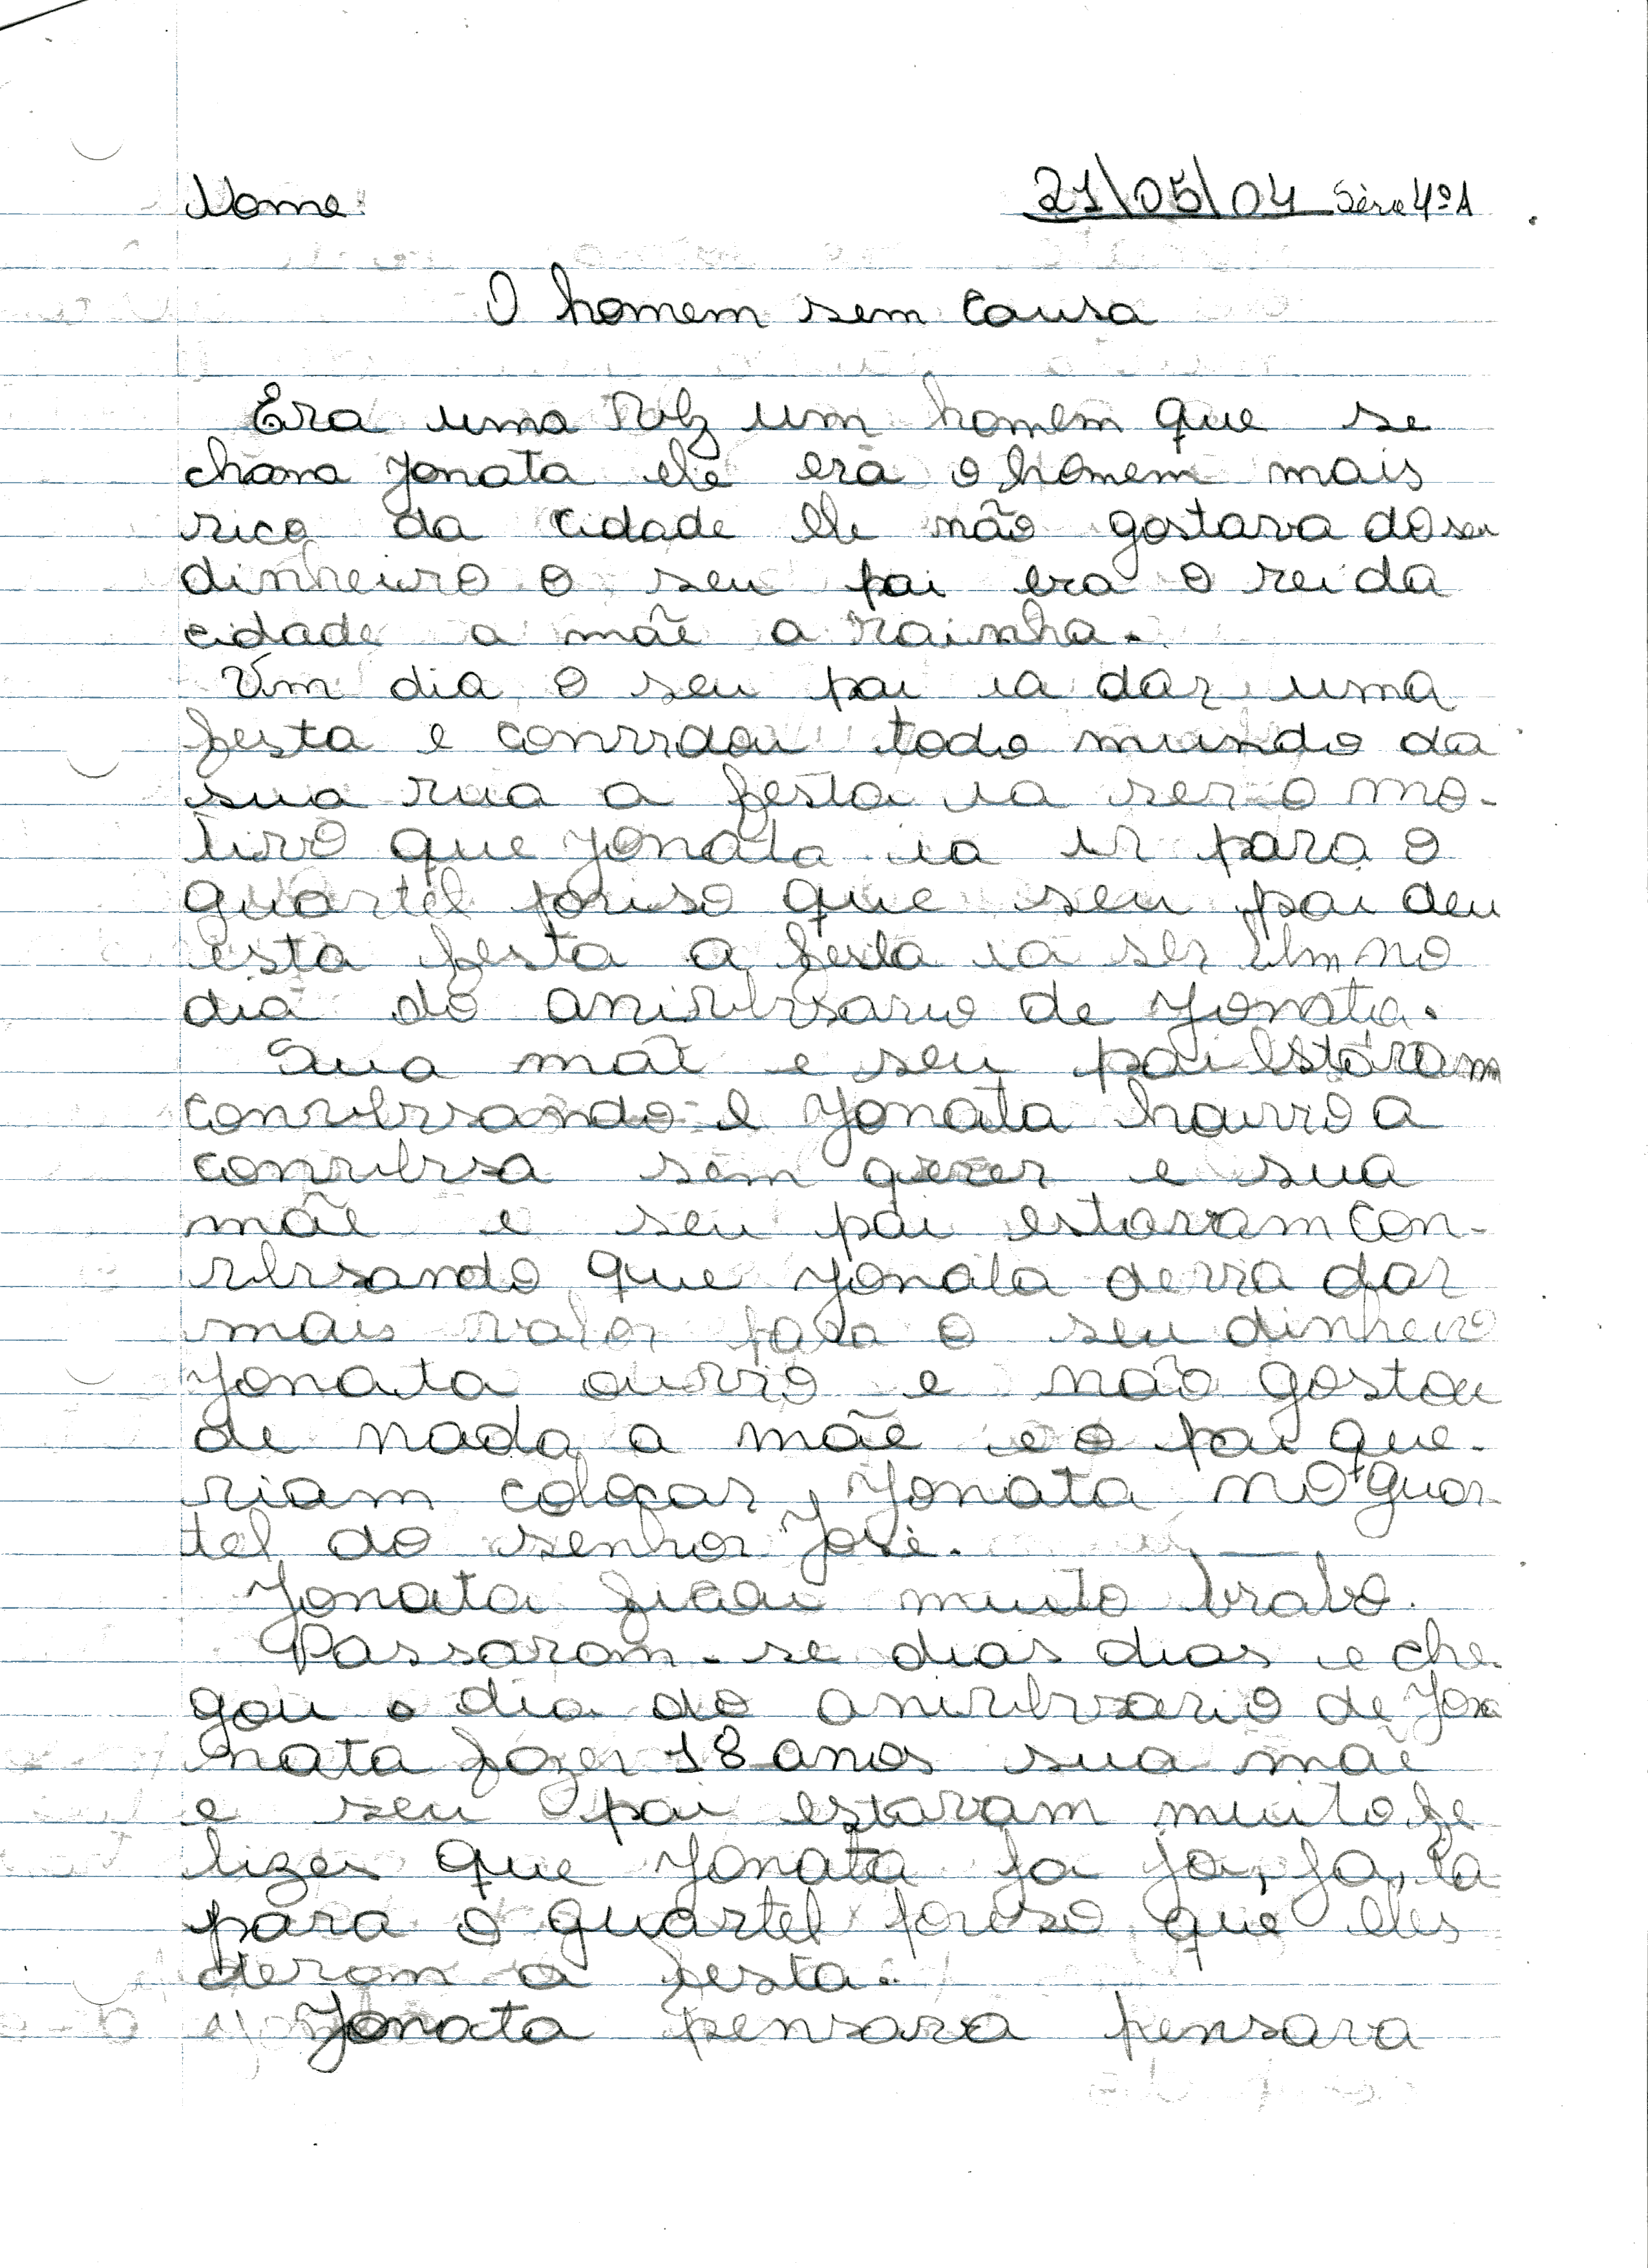 Nome: 21/05/04 Série 4ºA
O homem sem causa
Era uma vez um homem que se
chama Jonata ele era o homem mais
rico da cidade ele não gostava do seu
dinheiro o seu pai era o rei da
cidade a mãe a rainha.
Um dia o seu pai ia dar uma
festa e convidou todo mundo da
sua rua a festa ia ser o mo-
tivo que Jonata ia ir para o
quartel poriso que seu pai deu
esta festa a festa ia ser bem no
dia do aniversario de Jonata.
Sua mãe e seu pai estavam
conversando e Jonata houvio a
conversa sem querer e sua
mãe e seu pai estavam con-
versando que Jonata devia dar
mais valor para o seu dinheiro
Jonata ouvio e não gostou
de nada a mãe e o pai que-
riam colocar Jonata no quar-
tel do senhor José.
Jonata ficou muito brabo.
Passaram-se dias dias e che-
gou o dia do aniversario de Jona
nata fazer 18 anos sua mãe
e seu pai estavam muito fe
lizes que Jonata ja ja, ja, ia
para o quartel poriso que eles
deram a festa.
Jonata pensava pensava